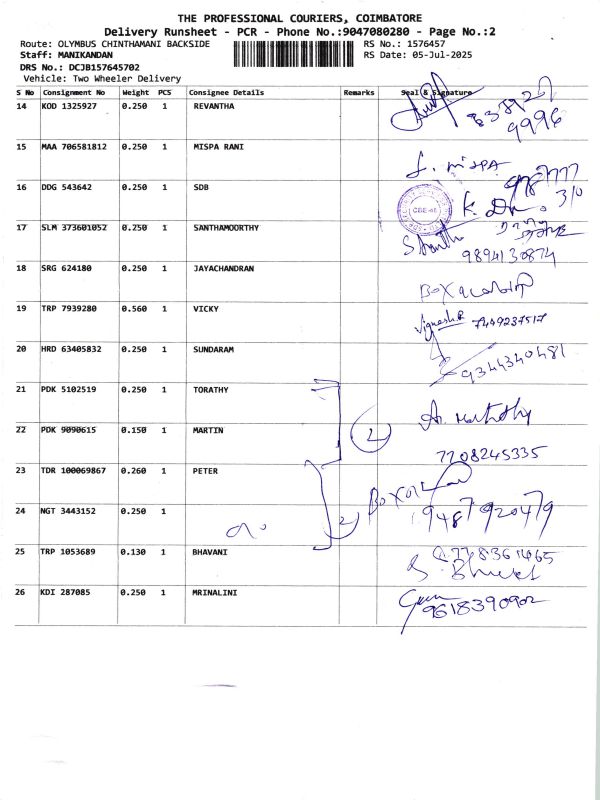 THE PROFESSIONAL COURIERS, COIMBATORE
Delivery Runsheet - PCR - Phone No.:9047080280 - Page No.:2
Route: OLYMBUS CHINTHAMANI BACKSIDE RS No.: 1576457
Staff: MANIKANDAN RS Date: 05-Jul-2025
DRS No.: DCJB157645702
Vehicle: Two Wheeler Delivery
S No Consignment No Weight PCS Consignee Details Remarks Seal & Signature
14 KOD 1325927 0.250 1 REVANTHA
9996
15 MAA 706581812 0.250 1 MISPA RANI
16 DDG 543642 0.250 1 SDB
310
CBE-45
17 SLM 373601052 0.250 1 SANTHAMOORTHY
9894130874
18 SRG 624180 0.250 1 JAYACHANDRAN
Box
19 TRP 7939280 0.560 1 VICKY
7449237517
20 HRD 63405832 0.250 1 SUNDARAM
9344340481
21 PDK 5102519 0.250 1 TORATHY
22 PDK 9090615 0.150 1 MARTIN
2
7708245335
23 TDR 100069867 0.260 1 PETER
24 NGT 3443152 0.250 1
2
9487920479
25 TRP 1053689 0.130 1 BHAVANI
26 KDI 287085 0.250 1 MRINALINI
9618390902